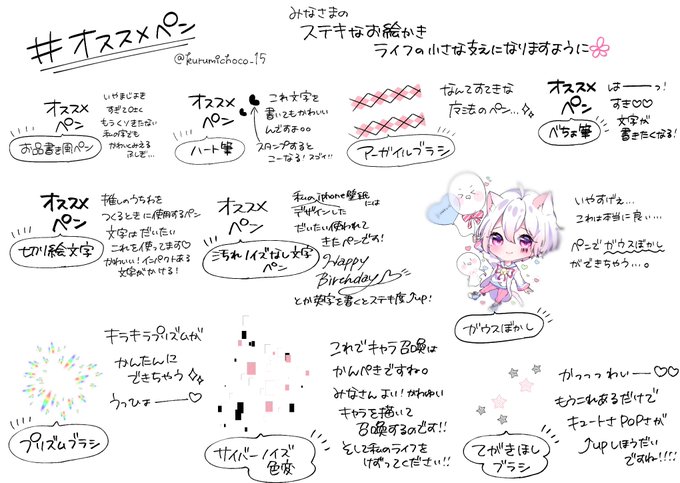 #オススメペン
@kurumichoco_15
みなさまの
ステキなお絵かき
ライフの小さな支えになりますように
オススメ
ペン
お品書き用ペン
もうくりさたない
私の字でも
かわいくみえる
ふしぎ...
オススメ
ペン
ハート筆
これ文字を
書いてもかわいい
んですよ。。
スタンプすると
こーなる!スゴイ!!
アーガイルブラシ
なんてすてきな
魔法のペン...
オススメ
ペン
べちょ筆
はーーっ!
すき♡♡
文字が
書きたくなる!
オススメ
ペン
切り絵文字
推しのうちわを
つくるときに使用するペン
文字はだいたい
これを使ってます♡
かわいい!インパクトある
文字がかける!
オススメ
ペン
こちれノイズなし文字
ペン
私のiphone壁紙
には
デザインした
だいたい使われて
きたペンです!
Happy
Birthday
とか英字を書くとステキ度↑up!
ガウスぼかし
いやすげえ...
これは本当に良い...
ペンでガウスぼかし
ができちゃう...。
プリズムブラシ
キラキラプリズムが
かんたんに
できちゃう
うっひょーー♡
サイバーノイズ
色変
これでキャラ召喚は
かんぺきですね。
みなさんよい!かわゆい
キャラを描いて
召喚するのです!!
そして私のライフを
けずってください!!
てがきほし
ブラシ
かっっっわいーー♡♡
もうこれあるだけで
キュートさPOPさが
↑upしほうだい
ですね!!!!